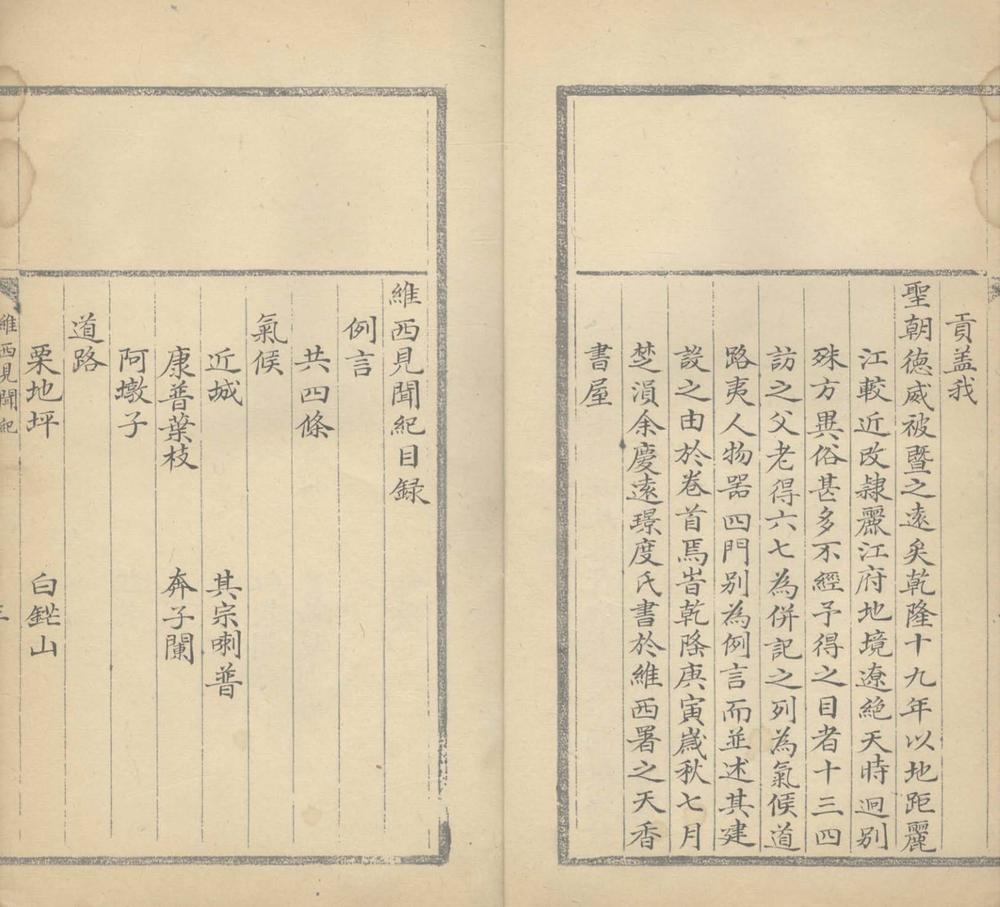 貢盖我
聖朝德威被暨之遠矣乾隆十九年以地距麗
江較近改隷麗江府地境遼絕天時迥別
殊方異俗甚多不經予得之目者十三四
訪之父老得六七為併記之列為氣候道
路夷人物器四門別為例言而並述其建
設之由於卷首焉旹乾隆庚寅歲秋七月
楚溳余慶遠璟度氏書於維西署之天香
書屋
維西見聞紀目録
例言
共四條
氣候
近城 其宗喇普
康普葉枝 奔子闌
阿墩子
道路
栗地坪 白鋩山
維西見聞紀